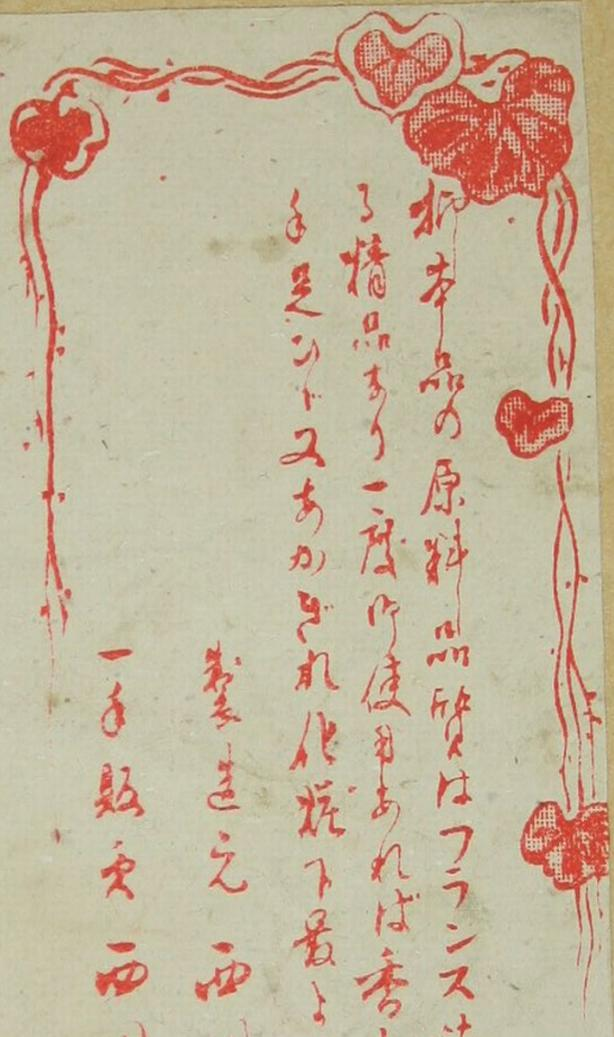 抑本品の原料品質はフランス
る精品なり一度御使用あれば香
手足ひゞ又あかぎれ化粧下最よ
製造元 西
一手販売 西